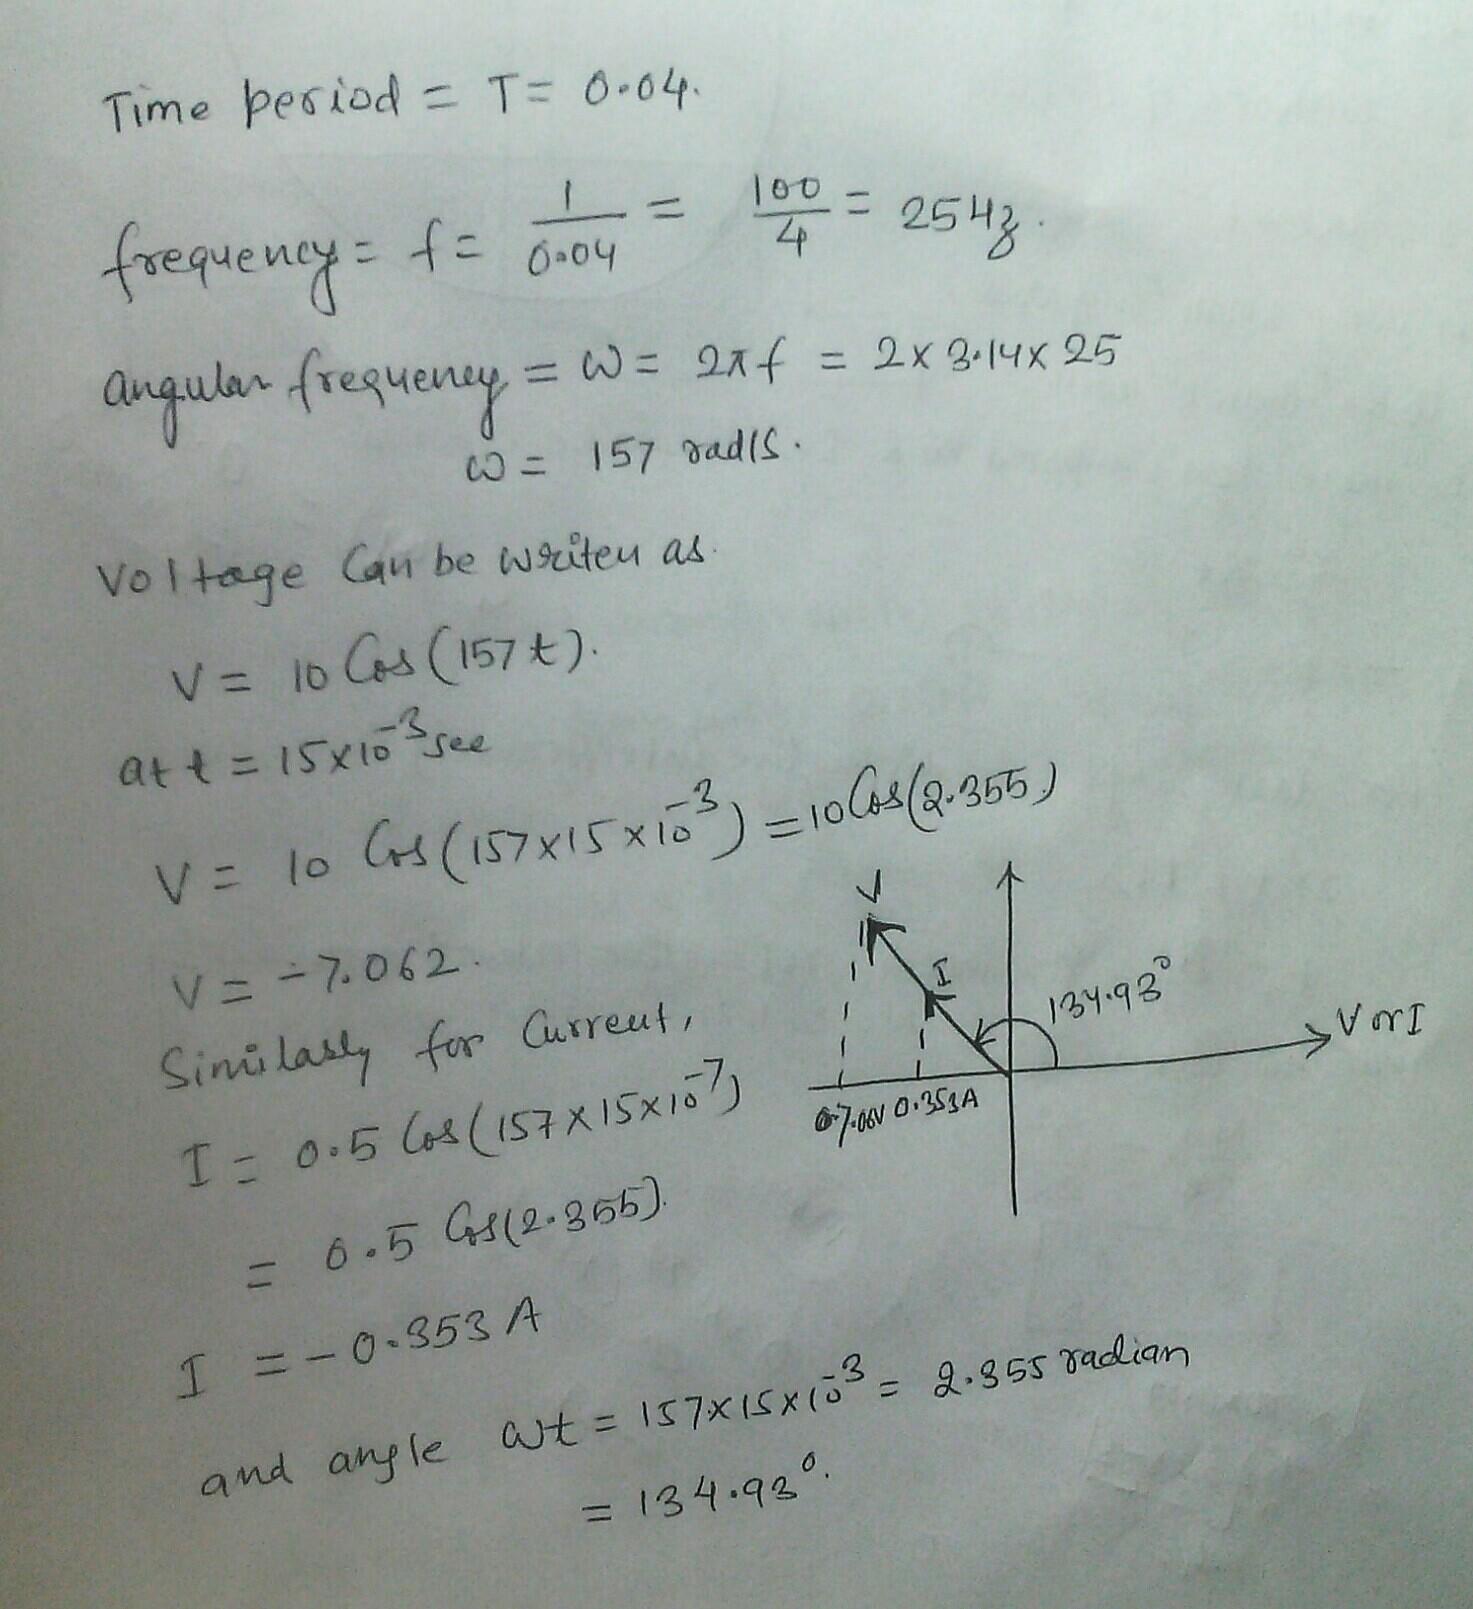 Time period = T = 0.04.
frequency = f = 1/0.04 = 100/4 = 25Hz.
angular frequency = ω = 2πf = 2x3.14x25
ω = 157 rad/s.
Voltage Can be writen as.
V = 10 Cos(157t).
at t = 15x10⁻³ sec
V = 10 Cos(157x15x10⁻³) = 10 Cos(2.355)
V = -7.062.
Similarly for Current,
I = 0.5 Cos(157x15x10⁻⁷)
= 0.5 Cos(2.355).
I = -0.353 A
and angle ωt = 157x15x10⁻³ = 2.355 radian
= 134.93°.
V
I
134.93°
V or I
7.06V 0.353A